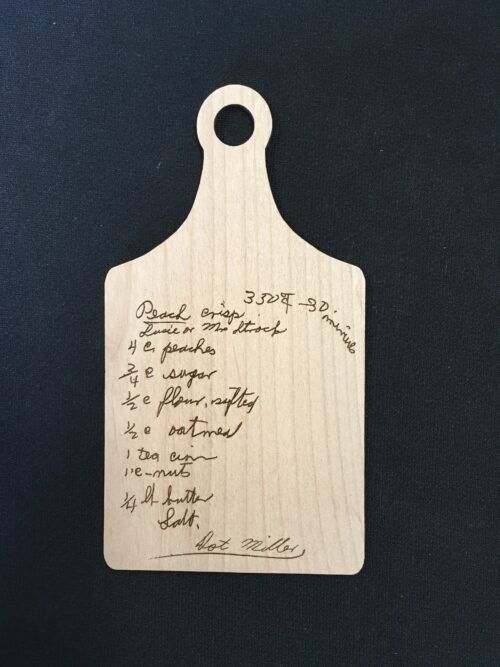 330°F - 30 minutes
Peach crisp
Lucie or Mrs
4 c. peaches
3/4 c sugar
1/2 c flour, sifted
1/2 c oatmeal
1 tea cin
1 c - nuts
1/4 lb butter
Salt.
Dot Miller